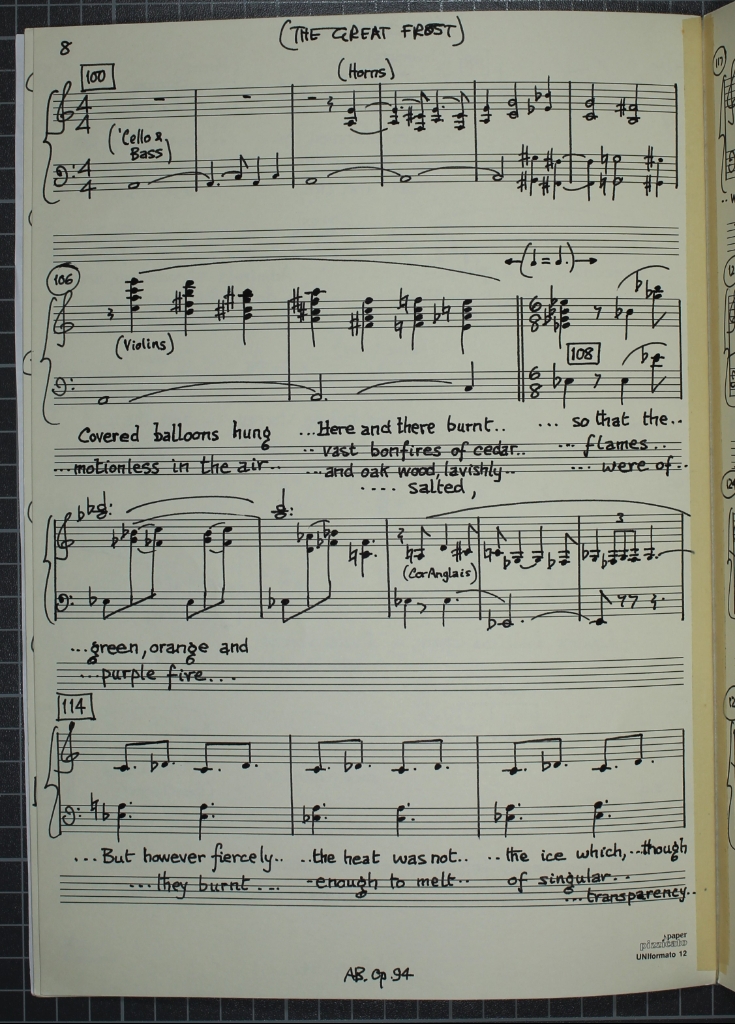 8
(THE GREAT FROST)
100
(Horns)
4
4
('Cello &
Bass)
4
4
106
(Violins)
6
8
108
6
8
Covered balloons hung
...motionless in the air...
...Here and there burnt..
.. vast bonfires of cedar..
..and oak wood, lavishly..
.... salted,
... so that the..
... flames..
... were of..
(Cor Anglais)
3
...green, orange and
...purple fire...
114
...But however fiercely..
...they burnt ...
..the heat was not..
-enough to melt..
..the ice which,..though
of singular..
...transparency..
paper
pizzicato
UNIformato 12
AB. Op. 94
117